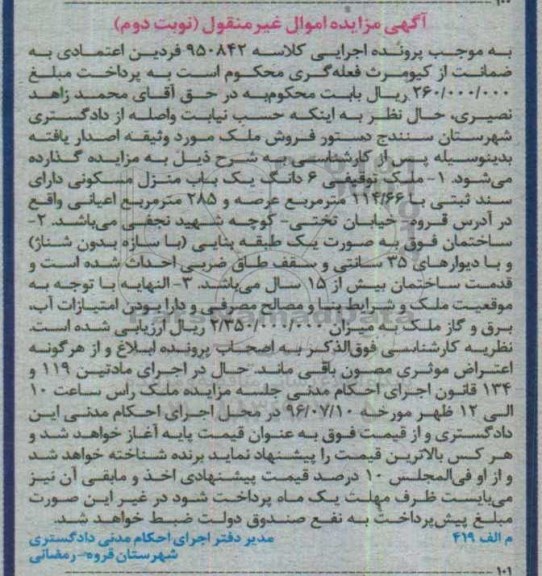 ۱۰۰
آگهی مزایده اموال غیرمنقول (نوبت دوم)
به موجب پرونده اجرایی کلاسه ۹۵۰۸۴۲ فردین اعتمادی به
ضمانت از کیومرث فعله‌گری محکوم است به پرداخت مبلغ
۲۶۰/۰۰۰/۰۰۰ ریال بابت محکوم‌به در حق آقای محمد زاهد
نصیری، حال نظر به اینکه حسب نیابت واصله از دادگستری
شهرستان سنندج دستور فروش ملک مورد وثیقه اصدار یافته
بدینوسیله پس از کارشناسی به شرح ذیل به مزایده گذارده
می‌شود. ۱- ملک توقیفی ۶ دانگ یک باب منزل مسکونی دارای
سند ثبتی با ۱۱۴/۶۶ مترمربع عرصه و ۲۸۵ مترمربع اعیانی واقع
در آدرس قروه - خیابان تختی- کوچه شهید نجفی می‌باشد. ۲-
ساختمان فوق به صورت یک طبقه بنایی (با سازه بدون شناژ)
و با دیوارهای ۳۵ سانتی و سقف طاق ضربی احداث شده است و
قدمت ساختمان بیش از ۱۵ سال می‌باشد. ۳- النهایه با توجه به
موقعیت ملک و شرایط بنا و مصالح مصرفی و دارا بودن امتیازات آب،
برق و گاز ملک به میزان ۲/۳۵۰/۰۰۰/۰۰۰ ریال ارزیابی شده است.
نظریه کارشناسی فوق‌الذکر به اصحاب پرونده ابلاغ و از هرگونه
اعتراض موثری مصون باقی ماند. حال در اجرای مادتین ۱۱۹ و
۱۳۴ قانون اجرای احکام مدنی جلسه مزایده ملک راس ساعت ۱۰
الی ۱۲ ظهر مورخه ۹۶/۰۷/۱۰ در محل اجرای احکام مدنی این
دادگستری و از قیمت فوق به عنوان قیمت پایه آغاز خواهد شد و
هر کس بالاترین قیمت را پیشنهاد نماید برنده شناخته خواهد شد
و از او فی‌المجلس ۱۰ درصد قیمت پیشنهادی اخذ و مابقی آن نیز
می‌بایست ظرف مهلت یک ماه پرداخت شود در غیر این صورت
مبلغ پیش‌پرداخت به نفع صندوق دولت ضبط خواهد شد.
م الف ۴۱۹ مدیر دفتر اجرای احکام مدنی دادگستری
شهرستان قروه- رمضانی
۱۰۱